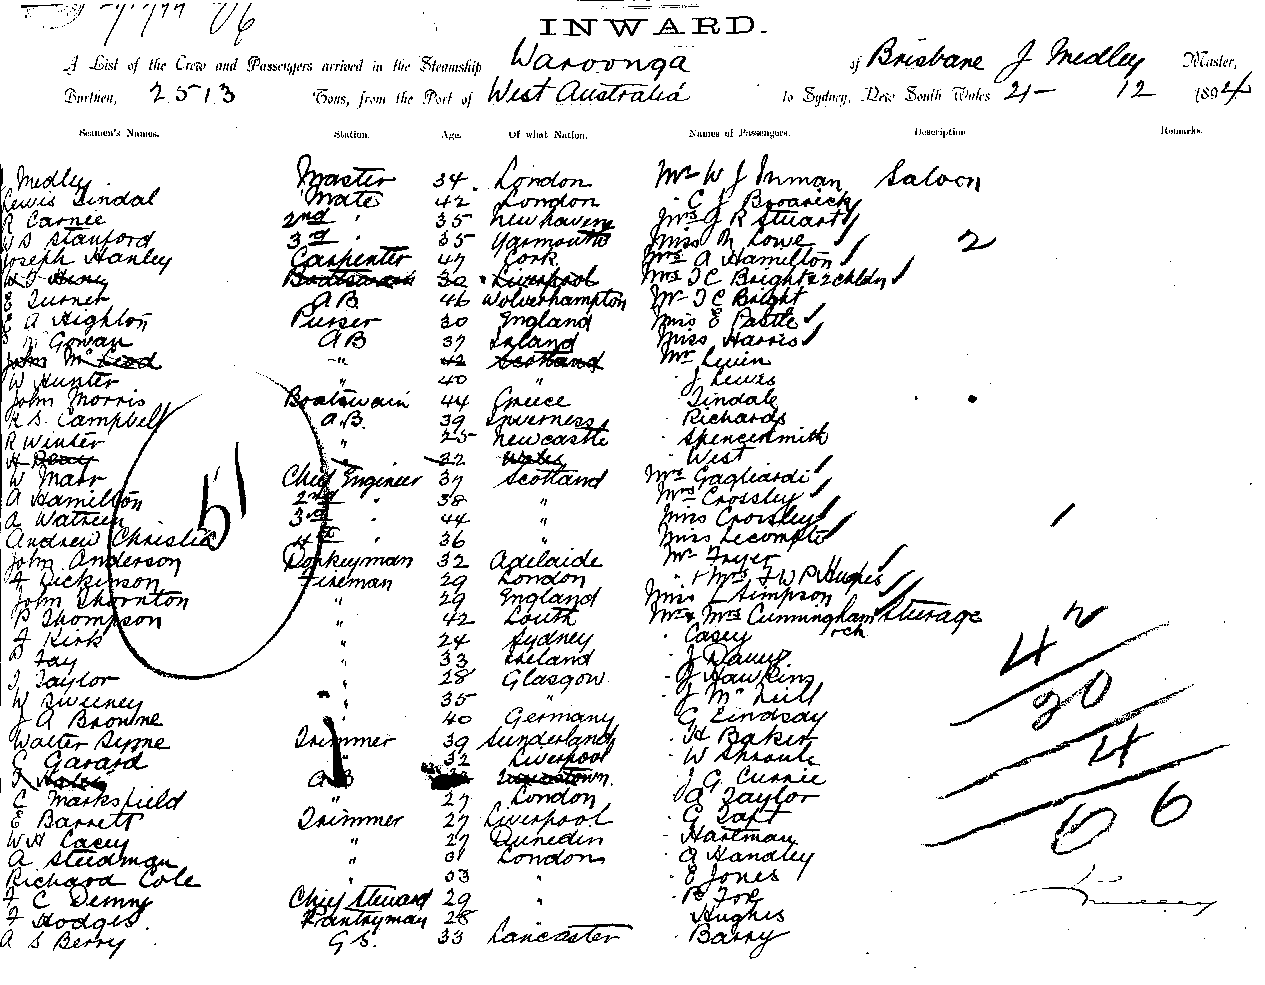 INWARD.
A List of the Crew and Passengers arrived in the Steamship Waroonga of Brisbane J Medley Master,
Burthen, 2513 Tons, from the Port of West Australia to Sydney, New South Wales 21- 12 1894
Seamen's Names. Station. Age. Of what Nation. Names of Passengers. Description Remarks.
Medley Master 34. London Mr W J Inman Saloon
Lewis Lindal Mate 42 London " C J Broarick
R Carnie 2nd " 35 Newhaven Mrs J R Stuart
W S Stanford 3rd " 35 Yarmouth Miss M Lowe 2
Joseph Hanley Carpenter 47 Cork Mrs A Hamilton
Boatswain 30 Liverpool Mrs T C Bright & 2 chldn
E Turner AB 46 Wolverhampton Mr T C Bright
A Highton Purser 30 England Miss E Pastle
McGowan AB 37 Ireland Miss Harris
John McLeod " 42 Scotland Mr Levin
W Hunter " 40 " " J Lewis
John Morris Boatswain 44 Greece " Tindale
R S. Campbell A.B. 39 Inverness " Richards
R Winter " 25 Newcastle " Spencersmith
" 32 Wales " West
W Marr Chief Engineer 37 Scotland Mrs Gagliardi
A Hamilton 2nd " 38 " Mrs Crossley
A Watreen 3rd " 44 " Miss Crossley
Andrew Christie 4th " 36 " Miss Lecompte
John Anderson Donkeyman 32 Adelaide Mr Fryer
F Dickinson Fireman 29 London " & Mrs F W P Hughes
John Thornton " 29 England Miss L Simpson
P Thompson " 42 Louth Mr & Mrs Cunningham Sturage
J Kirk " 24 Sydney " Casey & ch
P Fay " 33 Ireland " J Davey
J Taylor " 28 Glasgow " J Hawkins
W Sweeney " 35 " " J McNeill
J A Browne " 40 Germany " G Lindsay
Walter Byrne Trimmer 39 Sunderland " H Baker
C Garard " 32 Liverpool " W Sproule
AB Queenstown " J G Currie
C Marksfield " 27 London " A Taylor
E Barrett Trimmer 27 Liverpool " G Taft
W H Casey " 27 Dunedin " Hartman
A Steedman " 31 London " A Handley
Richard Cole " 33 " " E Jones
F C Denny Chief Steward 29 " " B Fox
F Hodges. Pantryman 28 " " Hughes
A S Berry G S. 33 Lancaster " Barry
51
42
20
4
66